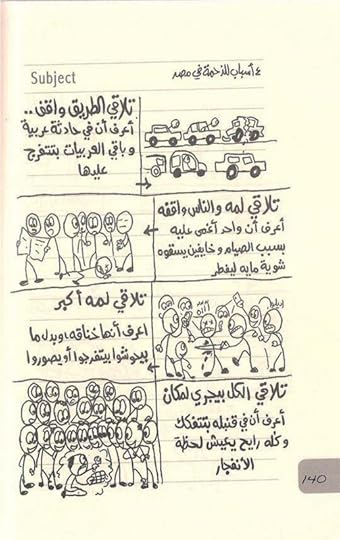 Subject
٤ أسباب للزحمة في مصر
تلاقي الطريق واقف..
أعرف أن في حادثة عربية
و باقي العربيات بتتفرج
عليها
تلاقي لمه والناس واقفه
أعرف أن واحد أغمى عليه
بسبب الصيام و خايفين يسقوه
شوية مايه ليفطر
تلاقي لمه أكبر
اعرف أنها خناقه، وبدل ما
بيحوشوا بيتفرجوا أو يصوروا
تلاقي الكل بيجري لمكان
أعرف أن في قنبله بتتفكك
و كله رايح يعيش لحظة
الأنفجار
140